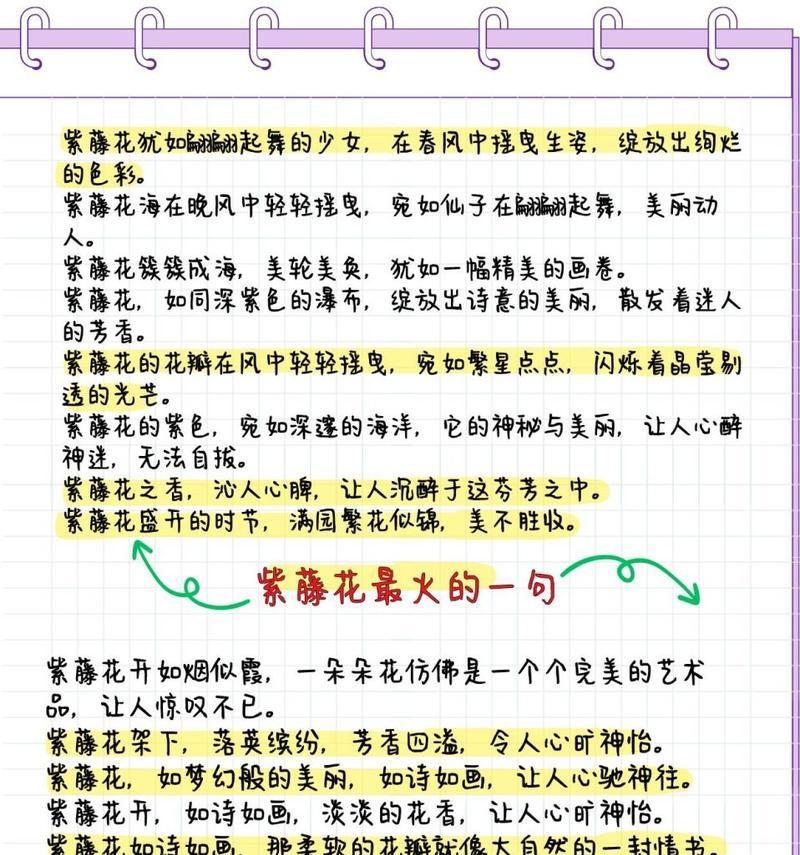 紫藤花犹如翩翩起舞的少女，在春风中摇曳生姿，绽放出绚烂
的色彩。
紫藤花海在晚风中轻轻摇曳，宛如仙子在翩翩起舞，美丽动
人。
紫藤花簇簇成海，美轮美奂，犹如一幅精美的画卷。
紫藤花，如同深紫色的瀑布，绽放出诗意的美丽，散发着迷人
的芳香。
紫藤花的花瓣在风中轻轻摇曳，宛如繁星点点，闪烁着晶莹剔
透的光芒。
紫藤花的紫色，宛如深邃的海洋，它的神秘与美丽，让人心醉
神迷，无法自拔。
紫藤花之香，沁人心脾，让人沉醉于这芬芳之中。
紫藤花盛开的时节，满园繁花似锦，美不胜收。
紫藤花最火的一句
紫藤花开如烟似霞，一朵朵花仿佛是一个个完美的艺术
品，让人惊叹不已。
紫藤花架下，落英缤纷，芳香四溢，令人心旷神怡。
紫藤花，如梦幻般的美丽，如诗如画，让人心驰神往。
紫藤花开，如诗如画，淡淡的花香，让人心旷神怡。
紫藤花如诗如画，那柔软的花瓣就像大自然的一封情书。